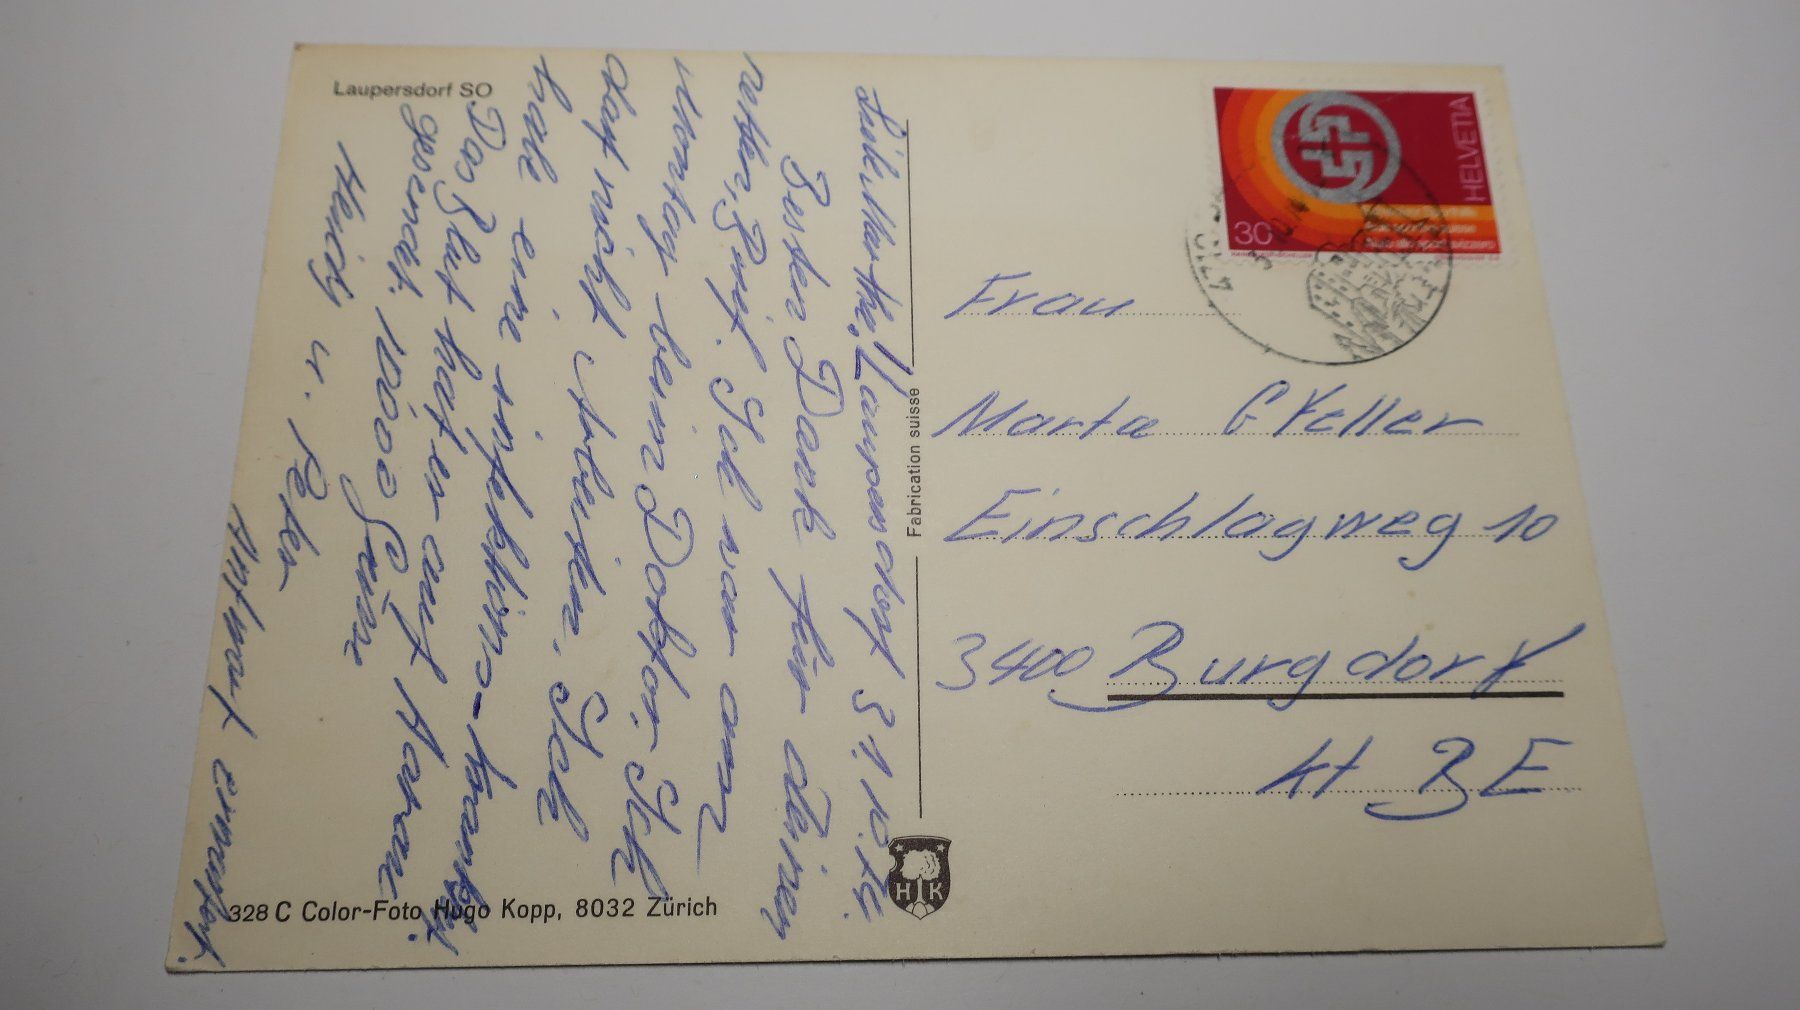 Laupersdorf SO
Lieb. Martha, Laupersdorf 3.10.74.
Besten Dank für deinen
netten Brief. Ich war am
Montag beim Doktor. Ich
darf nicht Arbeiten. Ich
habe eine infektions-krankheit.
Das Blut hat er auf Aarau
gesendet. 1000 Grüsse
Heidy u. Peter
Antwort erwartet.
328 C Color-Foto Hugo Kopp, 8032 Zürich
Fabrication suisse
HK
HELVETIA
30
4712
Frau
Marta Gfeller
Einschlagweg 10
3400 Burgdorf
Kt BE